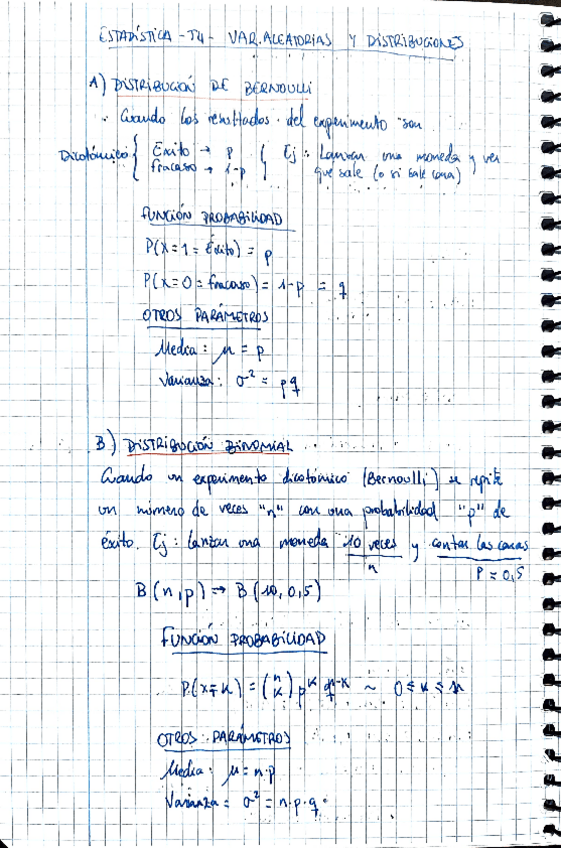 ESTADÍSTICA - T4 - VAR. ALEATORIAS Y DISTRIBUCIONES
A) DISTRIBUCIÓN DE BERNOULLI
· Cuando los resultados del experimento son
Dicotómico { Éxito → p { Ej: Lanzar una moneda y ver
fracaso → 1-p que sale (o si sale cara)
FUNCIÓN PROBABILIDAD
P(X=1=Éxito) = p
P(X=0=fracaso) = 1-p = q
OTROS PARÁMETROS
Media: μ = p
Varianza: σ² = pq
B) DISTRIBUCIÓN BINOMIAL
Cuando un experimento dicotómico (Bernoulli) se repite
un número de veces "n" con una probabilidad "p" de
éxito. Ej: Lanzar una moneda 10 veces y contar las caras
n P = 0,5
B(n,p) ⇒ B(10, 0,5)
FUNCIÓN PROBABILIDAD
P(x=k) = (n k) p^k q^n-k ~ 0 ≤ k ≤ n
OTROS PARÁMETROS
Media: μ = n·p
Varianza = σ² = n·p·q